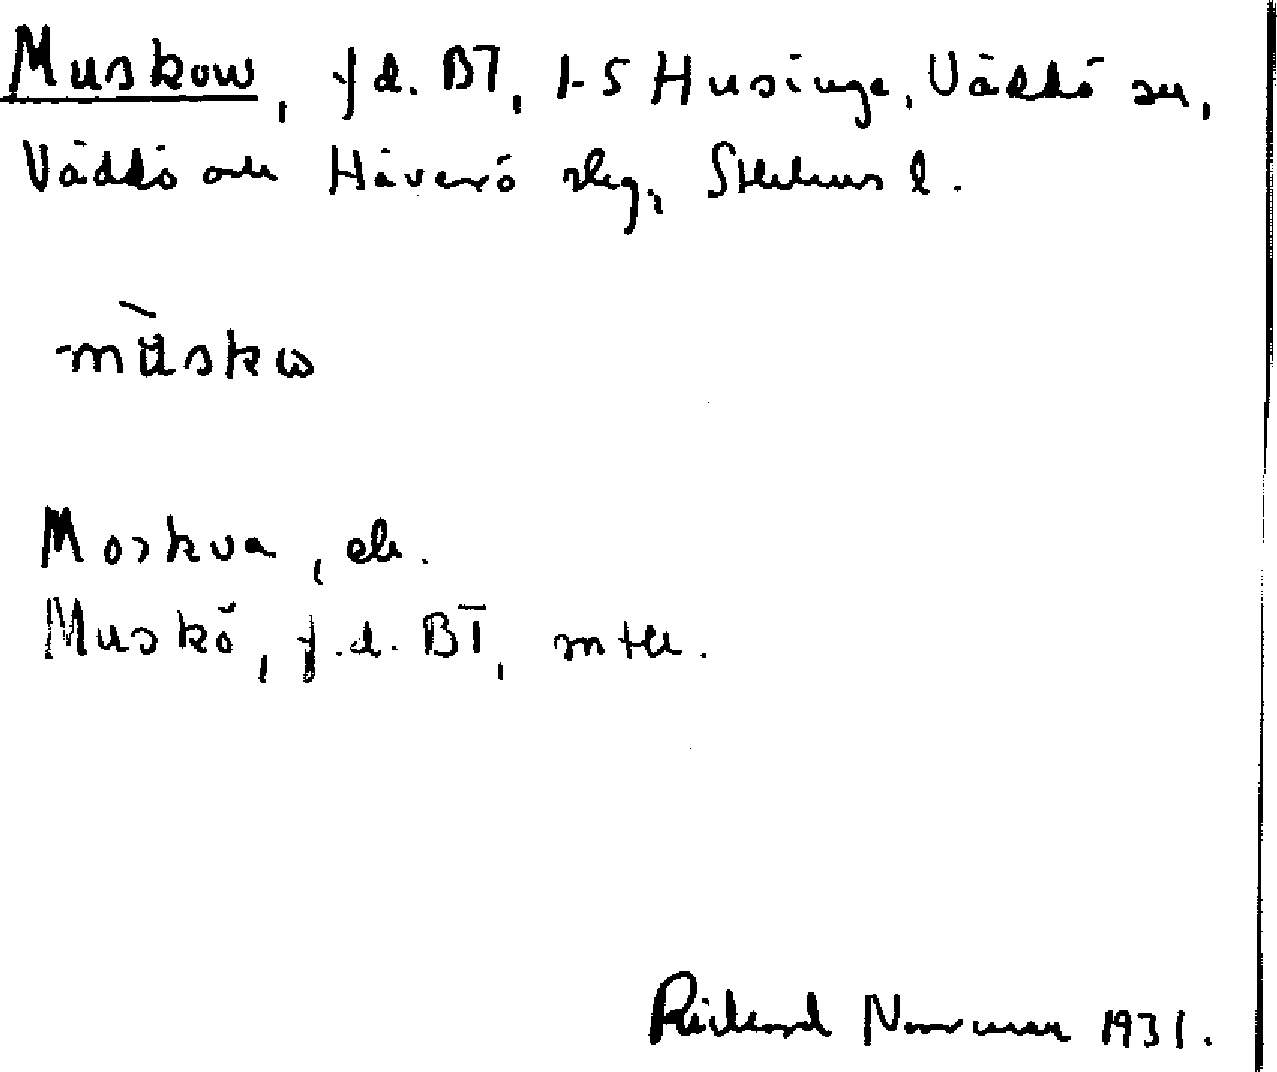 Muskow, f.d. BT, 1-5 Husinge, Väddö sn,
Väddö och Häverö skg, Sthlms l.
mùskω
Moskva, ek.
Muskö, f.d. BT, mtk.
Rickard Norrman 1931.